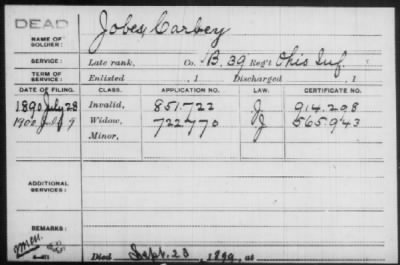 DEAD
NAME OF SOLDIER: Jobes, Corbey
SERVICE: Late rank, Co. B, 39 Reg't Ohio Inf.
TERM OF SERVICE: Enlisted , 1 Discharged , 1
DATE OF FILING. CLASS. APPLICATION NO. LAW. CERTIFICATE NO.
1890 July 28 Invalid, 851.722 J 914.298
1900 July 9 Widow, 722.770 J 565.943
Minor,
ADDITIONAL SERVICES:
REMARKS:
Died Sept. 23, 1899, at